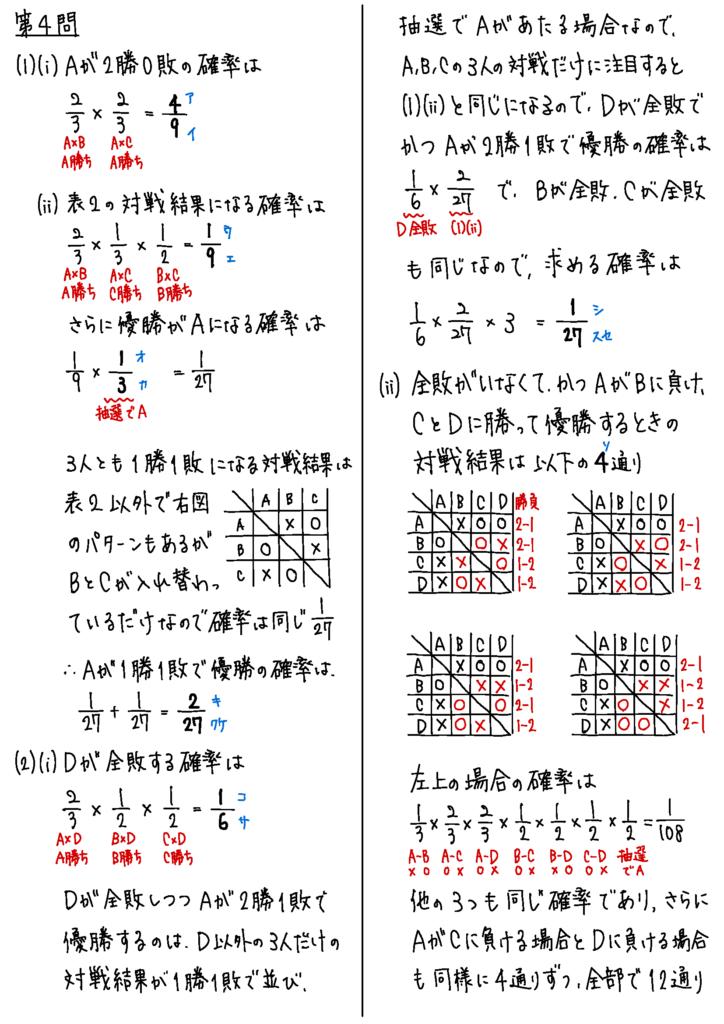 第4問
(1)(i) Aが2勝0敗の確率は
2/3 × 2/3 = 4/9 ア イ
A×B A×C
A勝ち A勝ち
(ii) 表2の対戦結果になる確率は
2/3 × 1/3 × 1/2 = 1/9 ウ エ
A×B A×C B×C
A勝ち C勝ち B勝ち
さらに優勝がAになる確率は
1/9 × 1/3 オ カ = 1/27
抽選でA
3人とも1勝1敗になる対戦結果は
表2以外で右図
のパターンもあるが
BとCが入れ替わっ
ているだけなので確率は同じ 1/27
A B C
A × ○
B ○ ×
C × ○
∴Aが1勝1敗で優勝の確率は、
1/27 + 1/27 = 2/27 キ クケ
(2)(i) Dが全敗する確率は
2/3 × 1/2 × 1/2 = 1/6 コ サ
A×D B×D C×D
A勝ち B勝ち C勝ち
Dが全敗しつつAが2勝1敗で
優勝するのは、D以外の3人だけの
対戦結果が1勝1敗で並び、
抽選でAがあたる場合なので、
A,B,Cの3人の対戦だけに注目すると
(1)(ii)と同じになるので、Dが全敗で
かつAが2勝1敗で優勝の確率は
1/6 × 2/27 で、Bが全敗、Cが全敗
D全敗 (1)(ii)
も同じなので、求める確率は
1/6 × 2/27 × 3 = 1/27 シ スセ
(ii) 全敗がいなくて、かつAがBに負け、
CとDに勝って優勝するときの
対戦結果は以下の4通り ソ
A B C D 勝負
A × ○ ○ 2-1
B ○ ○ × 2-1
C × × ○ 1-2
D × ○ × 1-2
A B C D
A × ○ ○ 2-1
B ○ × ○ 2-1
C × ○ × 1-2
D × × ○ 1-2
A B C D
A × ○ ○ 2-1
B ○ × × 1-2
C × ○ ○ 2-1
D × ○ × 1-2
A B C D
A × ○ ○ 2-1
B ○ × × 1-2
C × ○ × 1-2
D × ○ ○ 2-1
左上の場合の確率は
1/3 × 2/3 × 2/3 × 1/2 × 1/2 × 1/2 × 1/2 = 1/108
A-B A-C A-D B-C B-D C-D 抽選
× ○ ○ × ○ × ○ × × ○ ○ × でA
他の3つも同じ確率であり、さらに
AがCに負ける場合とDに負ける場合
も同様に4通りずつ、全部で12通り